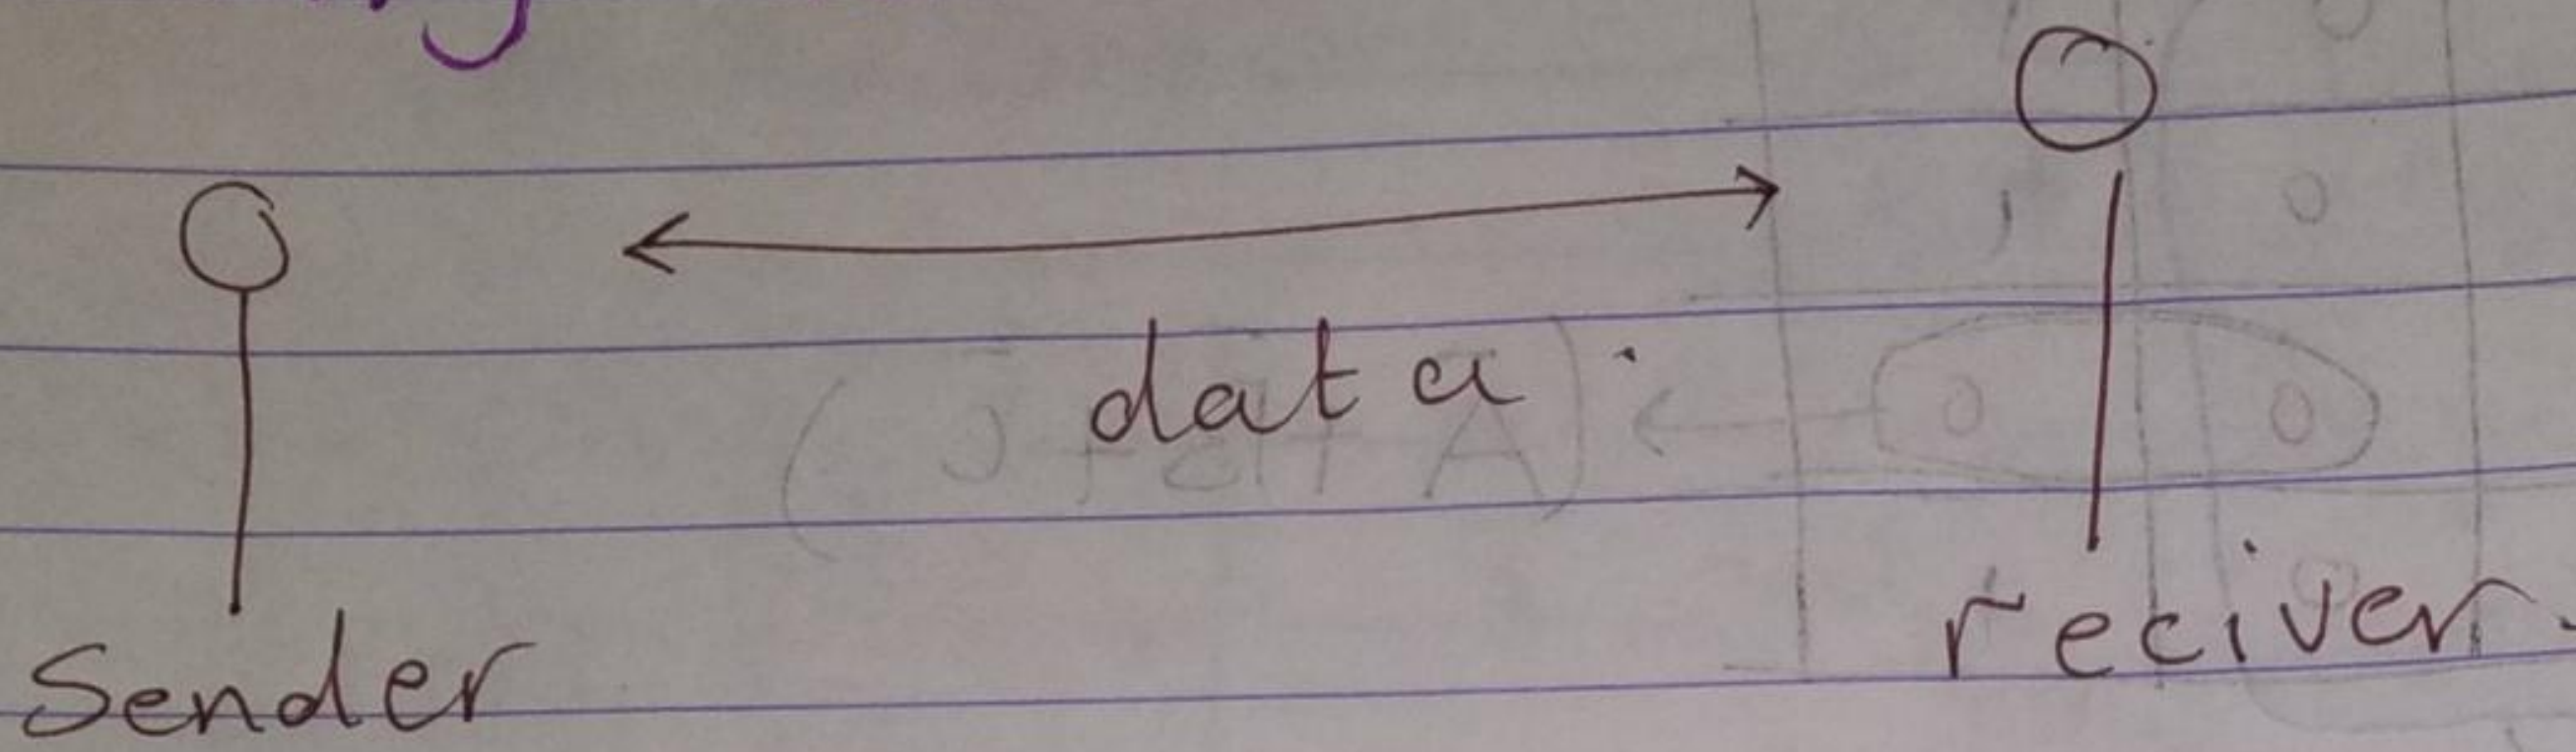 data.
Sender
reciver.